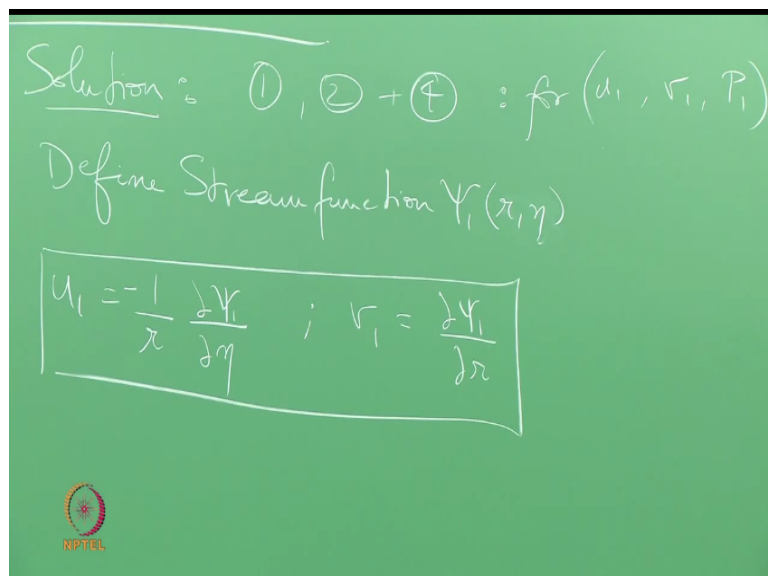 Solution: ①, ② + ④ : for (u₁, v₁, P₁)
Define Streamfunction Ψ₁(r,η)
u₁ = -1/r ∂Ψ₁/∂η ; v₁ = ∂Ψ₁/∂r
NPTEL